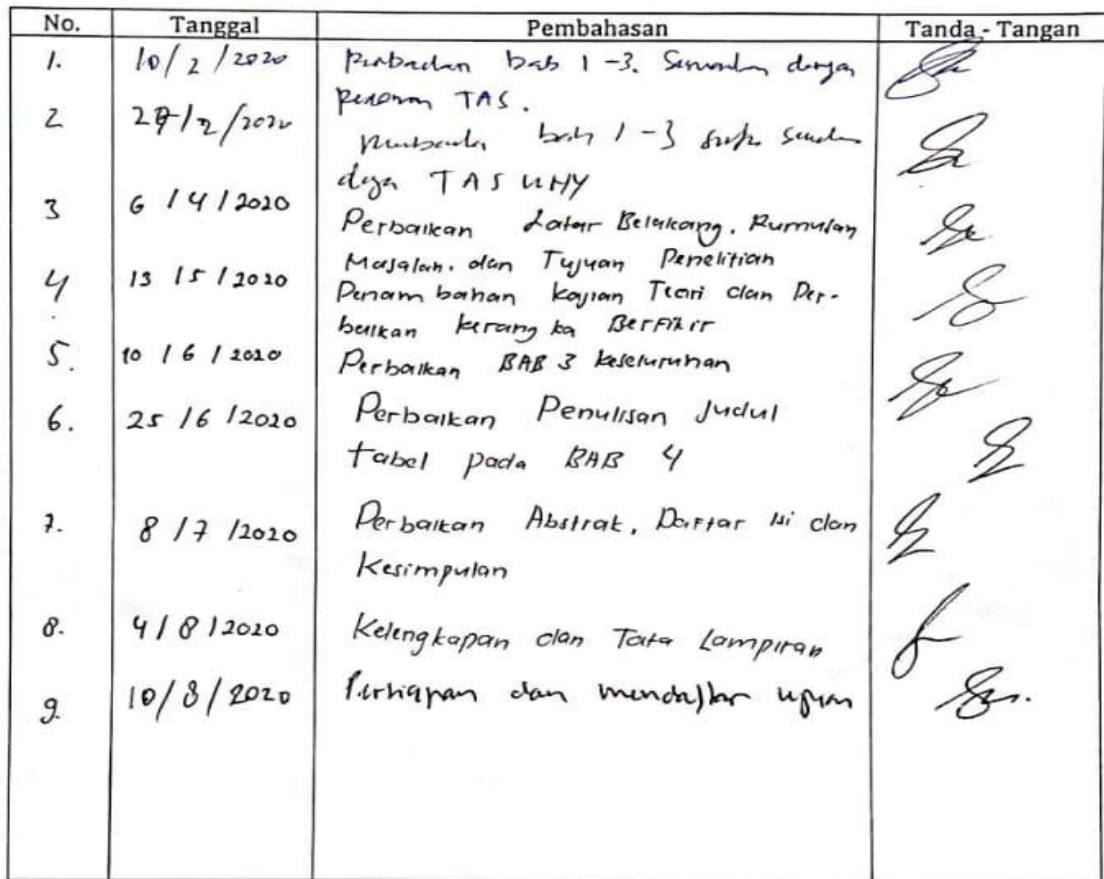 No. Tanggal Pembahasan Tanda - Tangan
1. 10/2/2020 bab 1-3. dengan
TAS.
2 27/2/2020 bab 1-3
TAS UNY
3 6/4/2020 Perbaikan Latar Belakang, Rumusan
Masalah, dan Tujuan Penelitian
4. 13/5/2020 Penambahan Kajian Teori dan Per-
baikan kerangka Berfikir
5. 10/6/2020 Perbaikan BAB 3 keseluruhan
6. 25/6/2020 Perbaikan Penulisan Judul
tabel pada BAB 4
7. 8/7/2020 Perbaikan Abstrak, Daftar isi dan
Kesimpulan
8. 4/8/2020 Kelengkapan dan Tata Lampiran
9. 10/8/2020 Persiapan dan mendaftar ujian